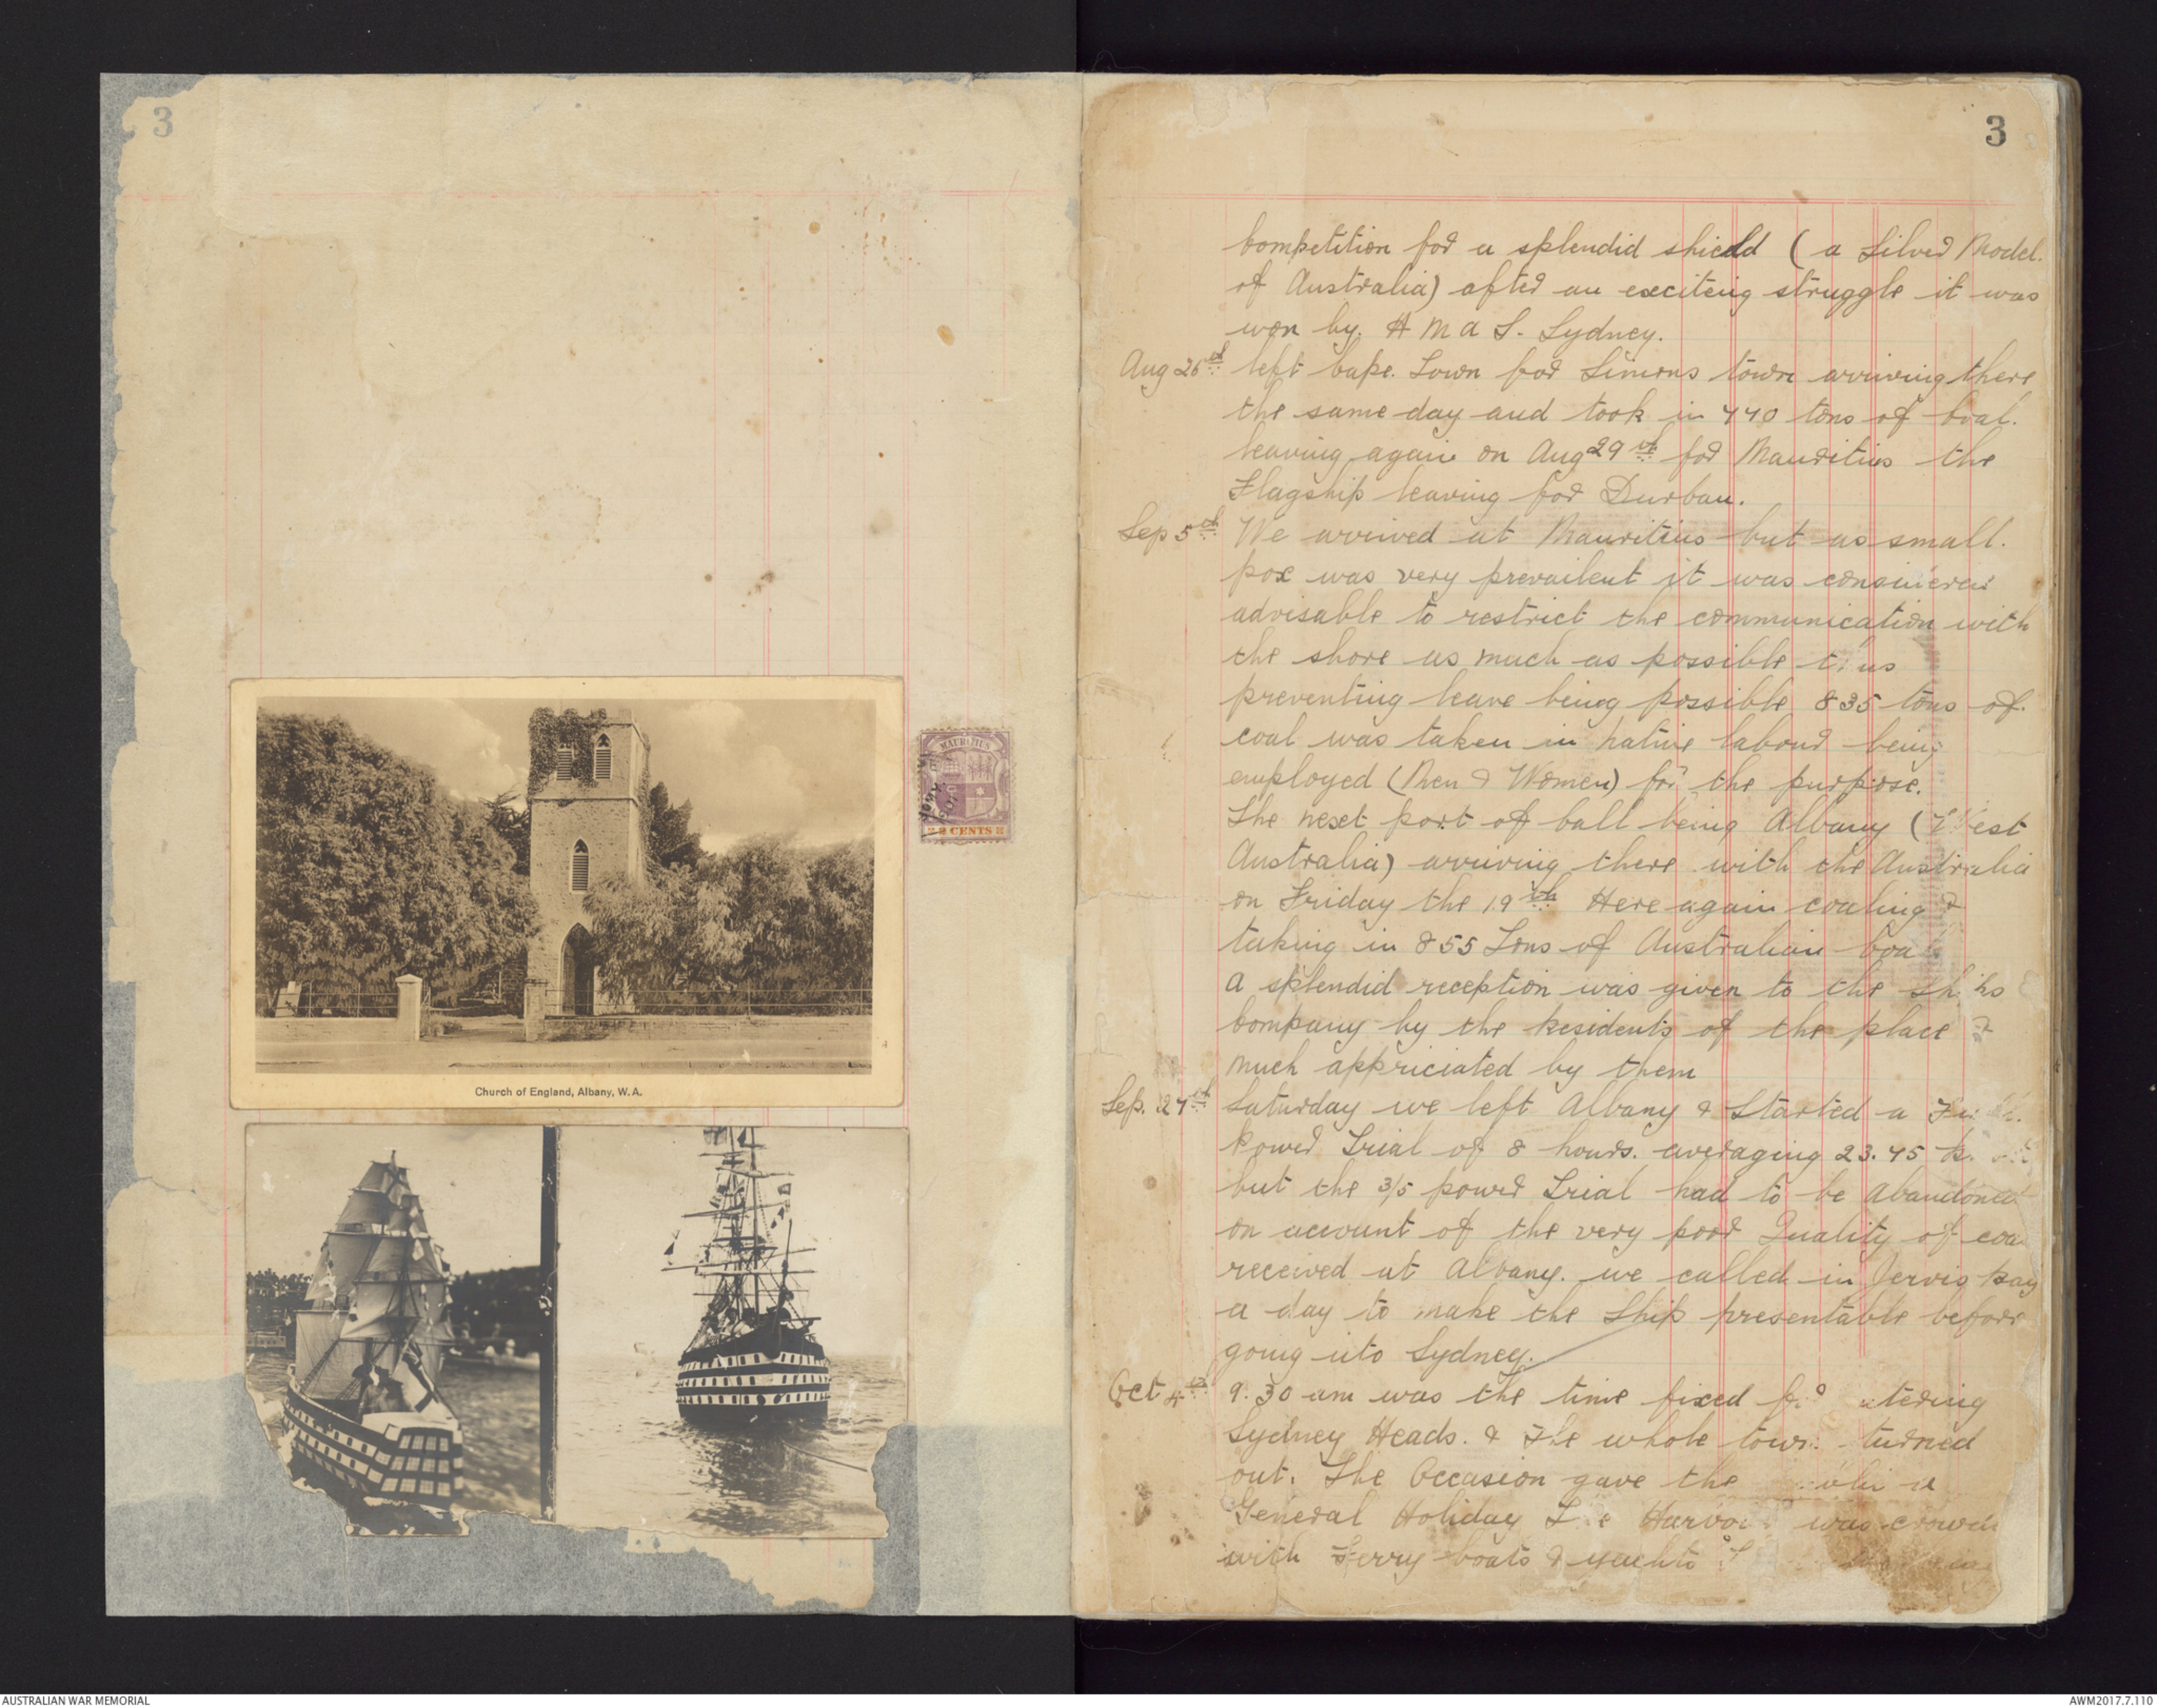 3
MAURITIUS
2 CENTS
Church of England, Albany, W.A.
3
Competition for a splendid shield ( a Silver Model.
of Australia) after an exciteing struggle it was
won by. H M A S. Sydney.
Aug 26th left Cape. Town for Simons town arriving there
the same day and took in 440 tons of Coal.
leaving again on Aug 29th for Mauritius the
Flagship leaving for Durban.
Sep 5th We arrived at Mauritius but as small.
pox was very prevailent it was considered
advisable to restrict the communication with
the shore as much as possible thus
preventing leave being possible 835 tons of.
coal was taken in native labour being
employed (Men & Women) for the purpose.
The next port of Call being Albany (West
Australia) arriving there with the Australia
on Friday the 19th Here again coaling &
taking in 855 Tons of Australian Coa
A splendid reception was given to the ships
Company by the Residents of the place &
much appriciated by them
Sep. 27th Saturday we left Albany & Started a Full.
Power Trial of 8 hours. averaging 23.45
but the 3/5 power Trial had to be Abandoned
on account of the very poor Quality of coa
received at Albany. we called in Jervis Bay
a day to make the Ship presentable before
going into Sydney.
Oct 4th 9.30 am was the time fixed for tering
Sydney Heads. & The whole town turned
out. The Occasion gave the a
General Holiday The Harbour was crowd
with Ferry boats & yachts
AUSTRALIAN WAR MEMORIAL
AWM2017.7.110